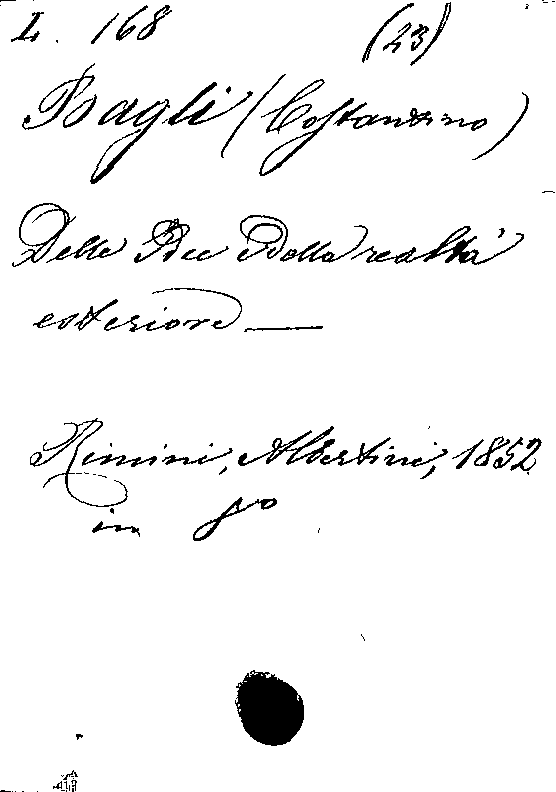 L. 168 (23)
Bagli (Costantino)
Delle Dee Della realtà
esteriore —
Rimini, Albertini, 1852
in 8º